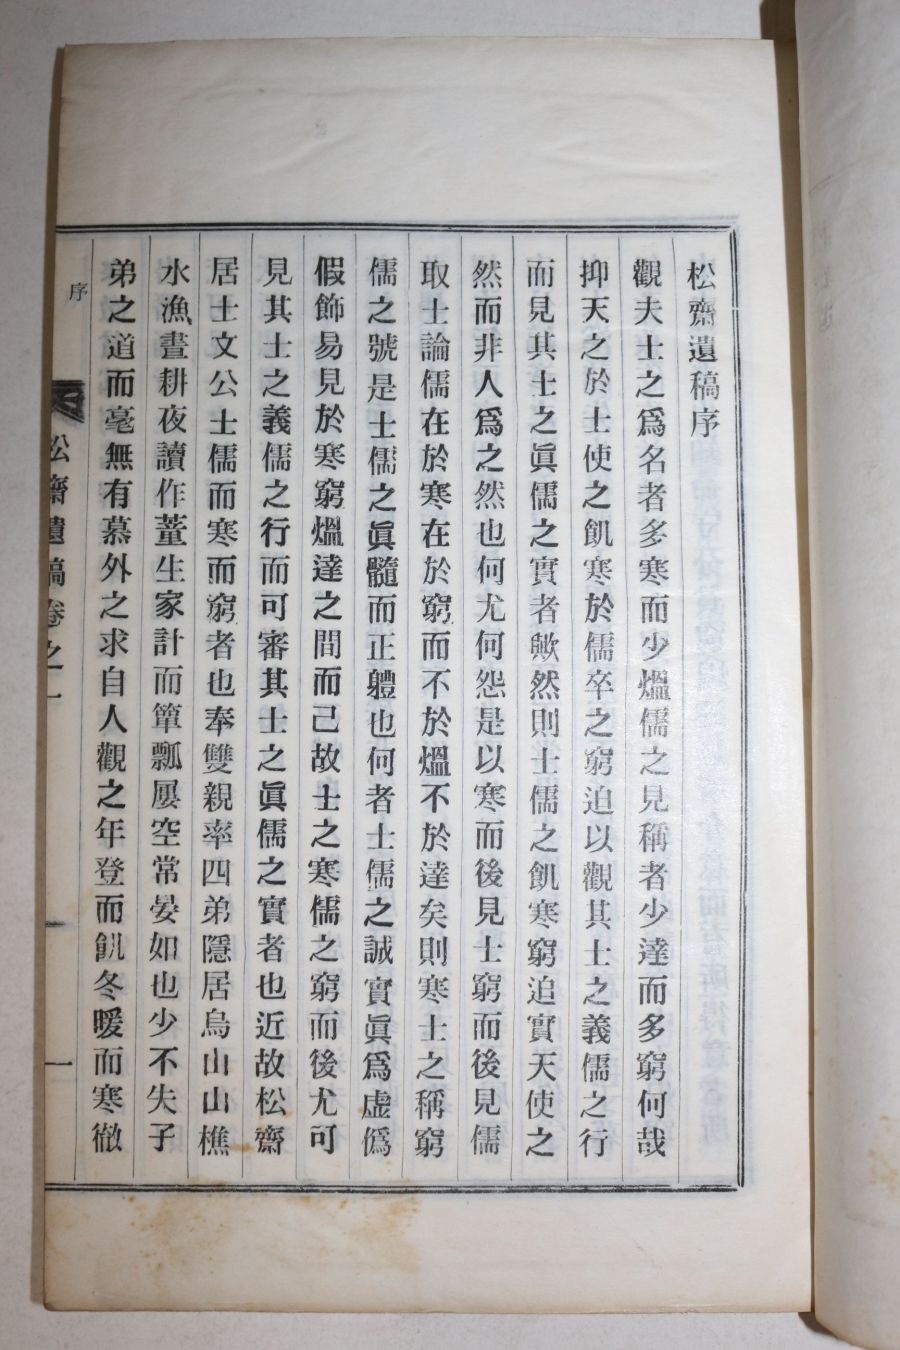 松齋遺稿序
觀夫士之爲名者多寒而少熅儒之見稱者少達而多窮何哉
抑天之於士使之飢寒於儒卒之窮迫以觀其士之義儒之行
而見其士之眞儒之實者歟然則士儒之飢寒窮迫實天使之
然而非人爲之然也何尤何怨是以寒而後見士窮而後見儒
取士論儒在於寒在於窮而不於熅不於達矣則寒士之稱窮
儒之號是士儒之眞髓而正軆也何者士儒之誠實眞爲虛僞
假飾易見於寒窮熅達之間而已故士之寒儒之窮而後尤可
見其士之義儒之行而可審其士之眞儒之實者也近故松齋
居士文公士儒而寒而窮者也奉雙親率四弟隱居烏山山樵
水漁晝耕夜讀作董生家計而簞瓢屢空常晏如也少不失子
弟之道而毫無有慕外之求自人觀之年登而飢冬暖而寒徹
序
松齋遺稿卷之一
一